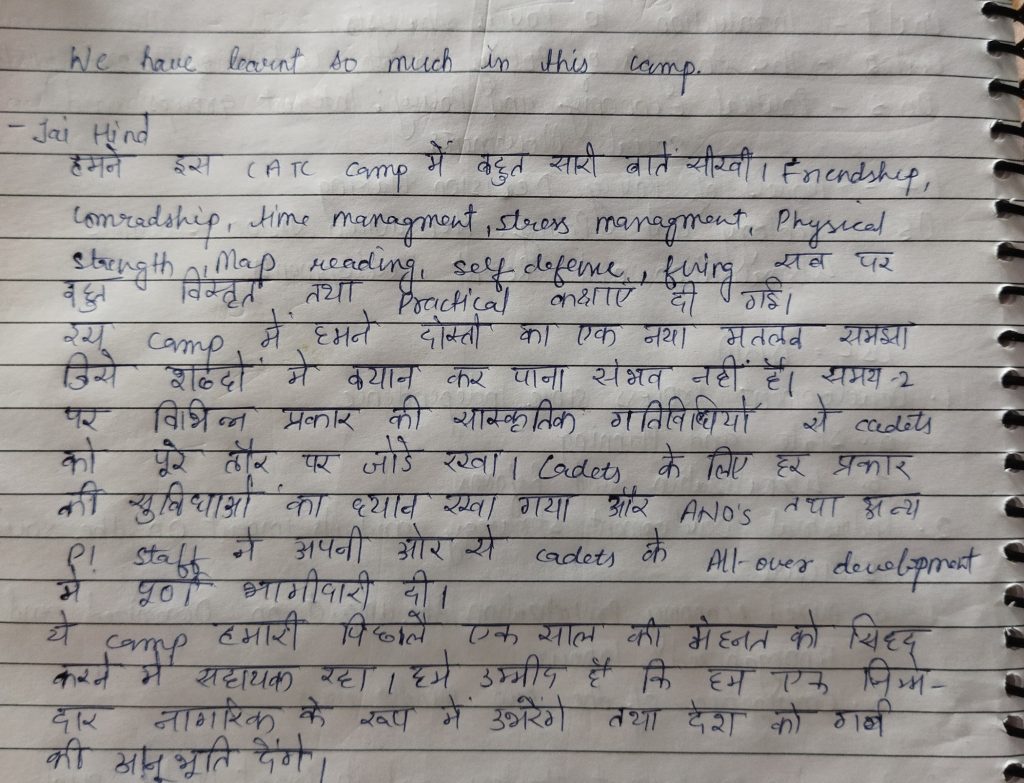 We have learnt so much in this camp.
- Jai Hind
हमने इस CATC camp में बहुत सारी बातें सीखी। Friendship,
Comradship, time managment, stress managment, Physical
strength, Map reading, self defense, firing सब पर
बहुत विस्तृत तथा Practical कक्षाएँ दी गई।
इस camp में हमने दोस्तो का एक नया मतलब समझा
जिसे शब्दों मे बयान कर पाना संभव नहीं है। समय-2
पर विभिन्न प्रकार की सास्कृतिक गतिविधियों से cadets
को पूरे तौर पर जोडे रखा। Cadets के लिए हर प्रकार
की सुविधाओं का ध्यान रखा गया और ANO's तथा अन्य
P! staff ने अपनी ओर से cadets के All-over development
मे पूर्ण भागीदारी दी।
ये camp हमारी पिछले एक साल की मेहनत को सिद्द
करने मे सहायक रहा। हमे उम्मीद है कि हम एक जिम्मे-
दार नागरिक के रूप में उभरेंगे तथा देश को गर्व
की अनुभूति देंगे।